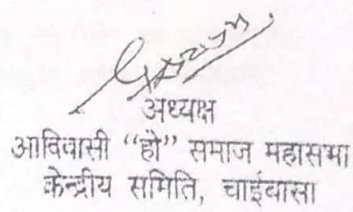 अध्यक्ष
आदिवासी "हो" समाज महासभा
केन्द्रीय समिति, चाईबासा